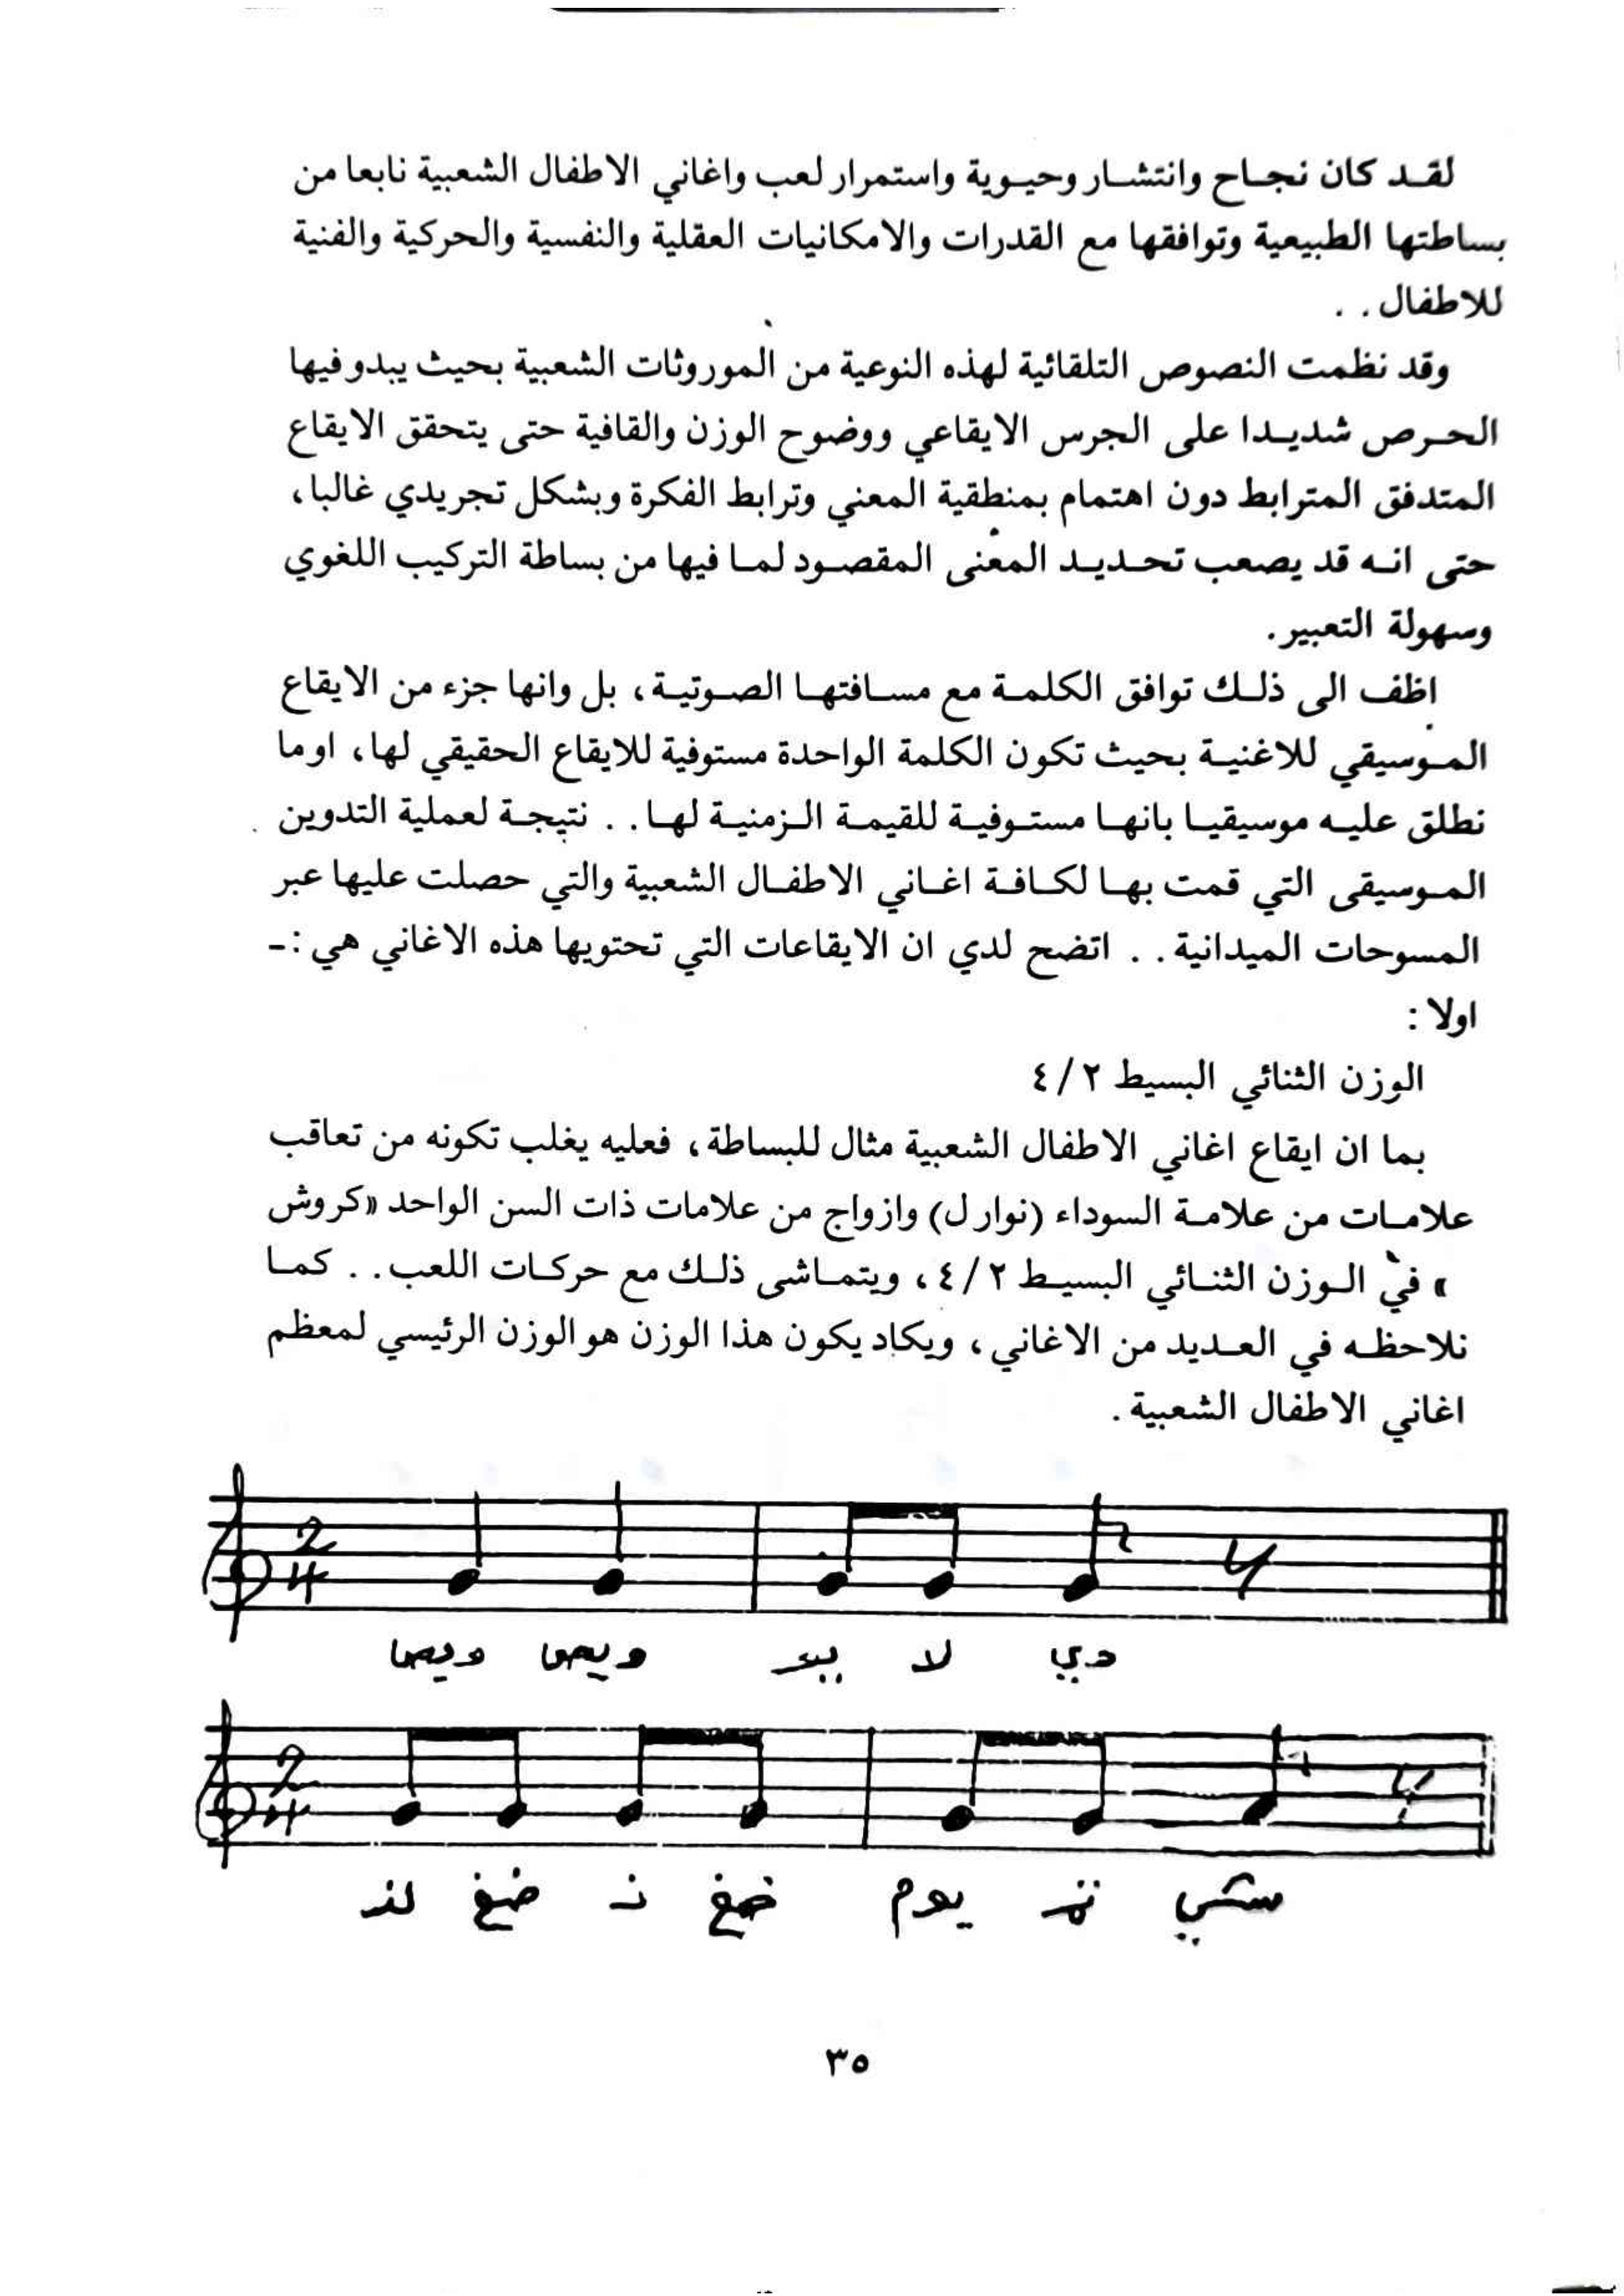 لقد كان نجاح وانتشار وحيوية واستمرار لعب واغاني الاطفال الشعبية نابعا من
بساطتها الطبيعية وتوافقها مع القدرات والامكانيات العقلية والنفسية والحركية والفنية
للاطفال . .
وقد نظمت النصوص التلقائية لهذه النوعية من الموروثات الشعبية بحيث يبدو فيها
الحرص شديدا على الجرس الايقاعي ووضوح الوزن والقافية حتى يتحقق الايقاع
المتدفق المترابط دون اهتمام بمنطقية المعني وترابط الفكرة وبشكل تجريدي غالبا،
حتى انه قد يصعب تحديد المعنى المقصود لما فيها من بساطة التركيب اللغوي
وسهولة التعبير.
اظف الى ذلك توافق الكلمة مع مسافتها الصوتية، بل وانها جزء من الايقاع
الموسيقي للاغنية بحيث تكون الكلمة الواحدة مستوفية للايقاع الحقيقي لها، او ما
نطلق عليه موسيقيا بانها مستوفية للقيمة الزمنية لها . . نتيجة لعملية التدوين
الموسيقى التي قمت بها لكافة اغاني الاطفال الشعبية والتي حصلت عليها عبر
المسوحات الميدانية . . اتضح لدي ان الايقاعات التي تحتويها هذه الاغاني هي :-
اولا :
الوزن الثنائي البسيط ٤/٢
بما ان ايقاع اغاني الاطفال الشعبية مثال للبساطة، فعليه يغلب تكونه من تعاقب
علامات من علامة السوداء (نوار ل) وازواج من علامات ذات السن الواحد «كروش
» في الوزن الثنائي البسيط ٤/٢، ويتماشى ذلك مع حركات اللعب . . كما
نلاحظه في العديد من الاغاني، ويكاد يكون هذا الوزن هو الوزن الرئيسي لمعظم
اغاني الاطفال الشعبية .
2
4
لا دي
2
4
ضغ يوم
٣٥